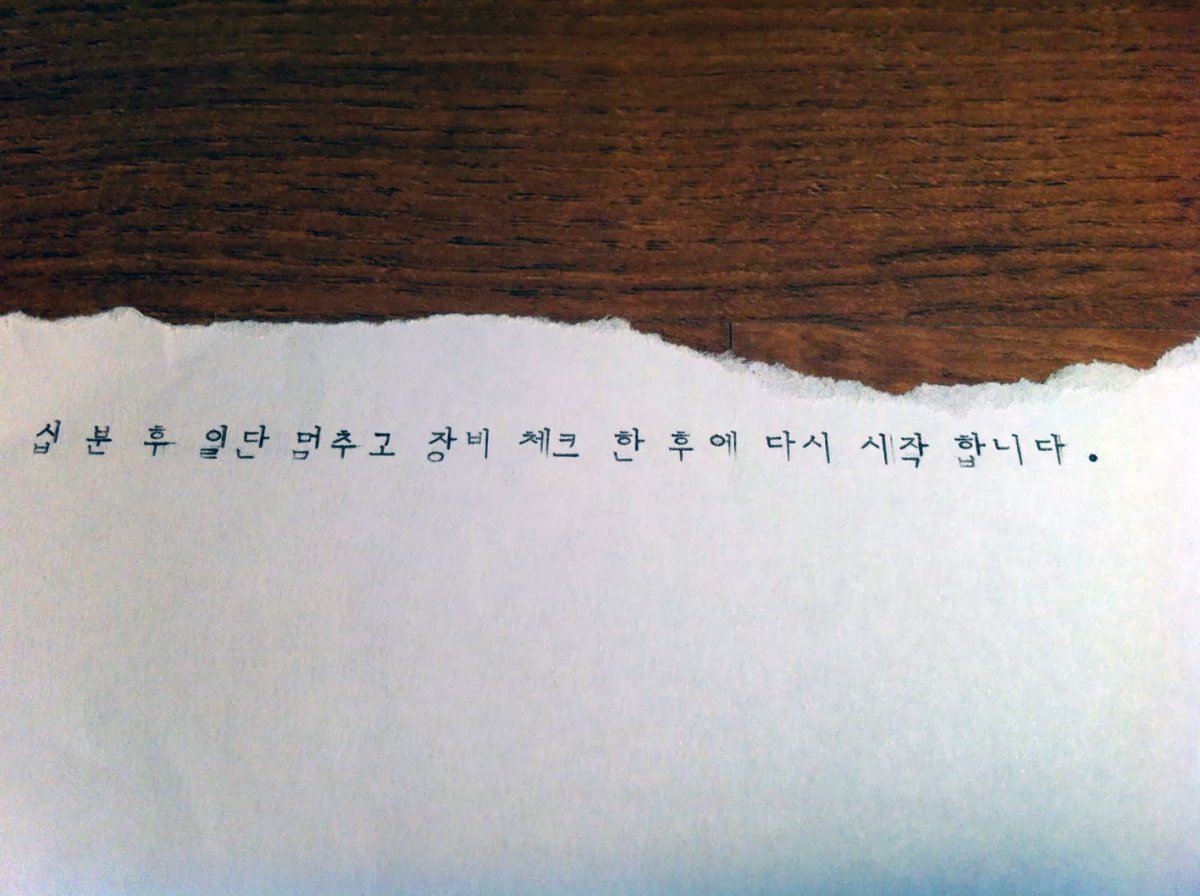 십 분 후 일단 멈추고 장비 체크 한 후에 다시 시작 합니다.